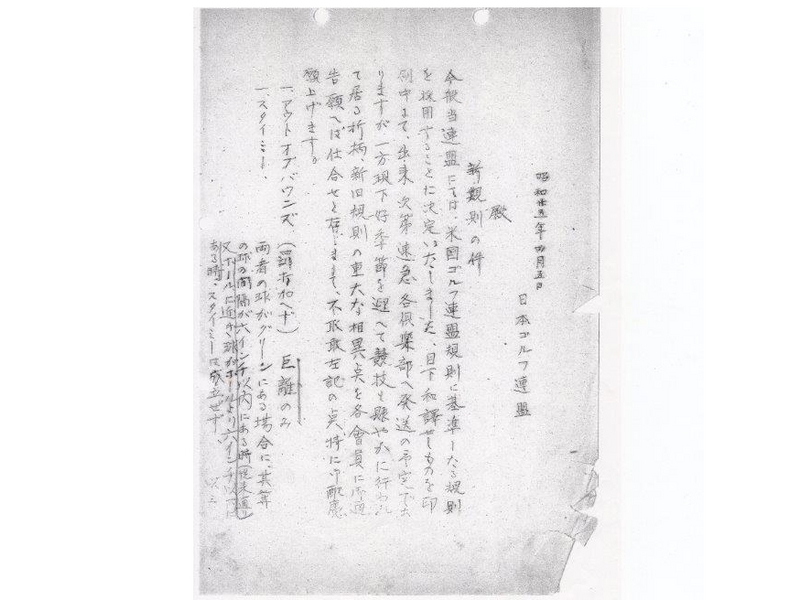 昭和廿五年四月五日
日本ゴルフ連盟
殿
新規則の件
今般当連盟にては、米国ゴルフ連盟規則に基準したる規則
を採用することに決定いたしました、目下和譯せしものを印
刷中にて、出来次第速急各倶楽部へ発送の予定であ
りますが一方現下好季節を迎へて競技も賑やかに行われ
て居る折柄、新旧規則の重大な相異点を各會員に御通
告願へば仕合せと存じまして、不取敢左記の点特に御配慮
願上げます。
一、アウトオブバウンズ (罰打加へず) 巨離のみ
一、スタイミー、
両者の球がグリーンにある場合に、其等
の球の間隔が六インチ以内にある時(従来通り)
又ホールに近き球がホールより六インチ以内に
ある時、スタイミーは成立せず